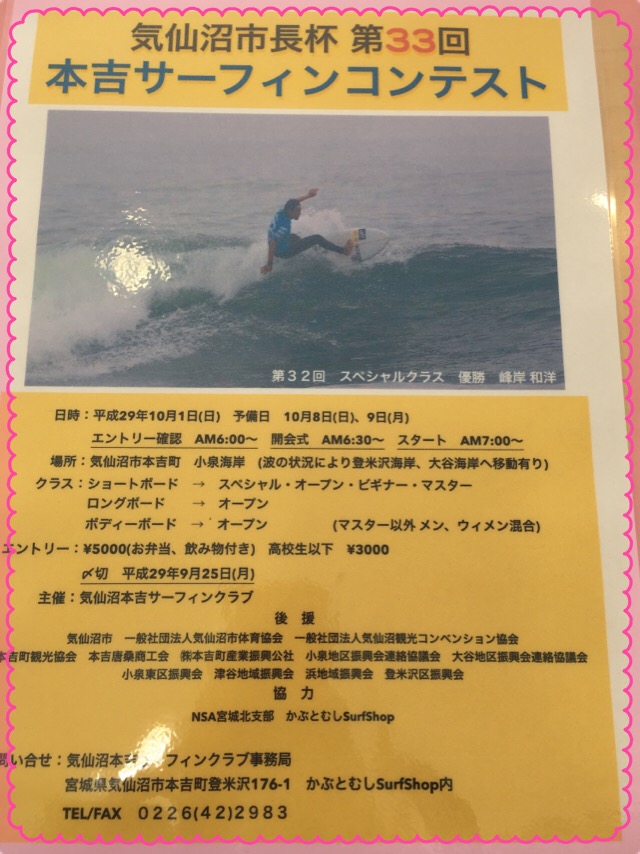 気仙沼市長杯 第33回
本吉サーフィンコンテスト
第３２回　スペシャルクラス　優勝　峰岸 和洋
日時：平成29年10月1日(日)　予備日　10月8日(日)、9日(月)
エントリー確認　AM6:00〜　開会式　AM6:30〜　スタート　AM7:00〜
場所：気仙沼市本吉町　小泉海岸　(波の状況により登米沢海岸、大谷海岸へ移動有り)
クラス：ショートボード　→　スペシャル・オープン・ビギナー・マスター
ロングボード　→　オープン
ボディーボード　→　オープン　(マスター以外 メン、ウィメン混合)
エントリー：¥5000(お弁当、飲み物付き)　高校生以下　¥3000
〆切　平成29年9月25日(月)
主催：気仙沼本吉サーフィンクラブ
後　援
気仙沼市　一般社団法人気仙沼市体育協会　一般社団法人気仙沼観光コンベンション協会
本吉町観光協会　本吉唐桑商工会　㈱本吉町産業振興公社　小泉地区振興会連絡協議会　大谷地区振興会連絡協議会
小泉東区振興会　津谷地域振興会　浜地域振興会　登米沢区振興会
協　力
NSA宮城北支部　かぶとむしSurfShop
問い合せ：気仙沼本吉サーフィンクラブ事務局
宮城県気仙沼市本吉町登米沢176-1　かぶとむしSurfShop内
TEL/FAX　０２２６(４２)２９８３